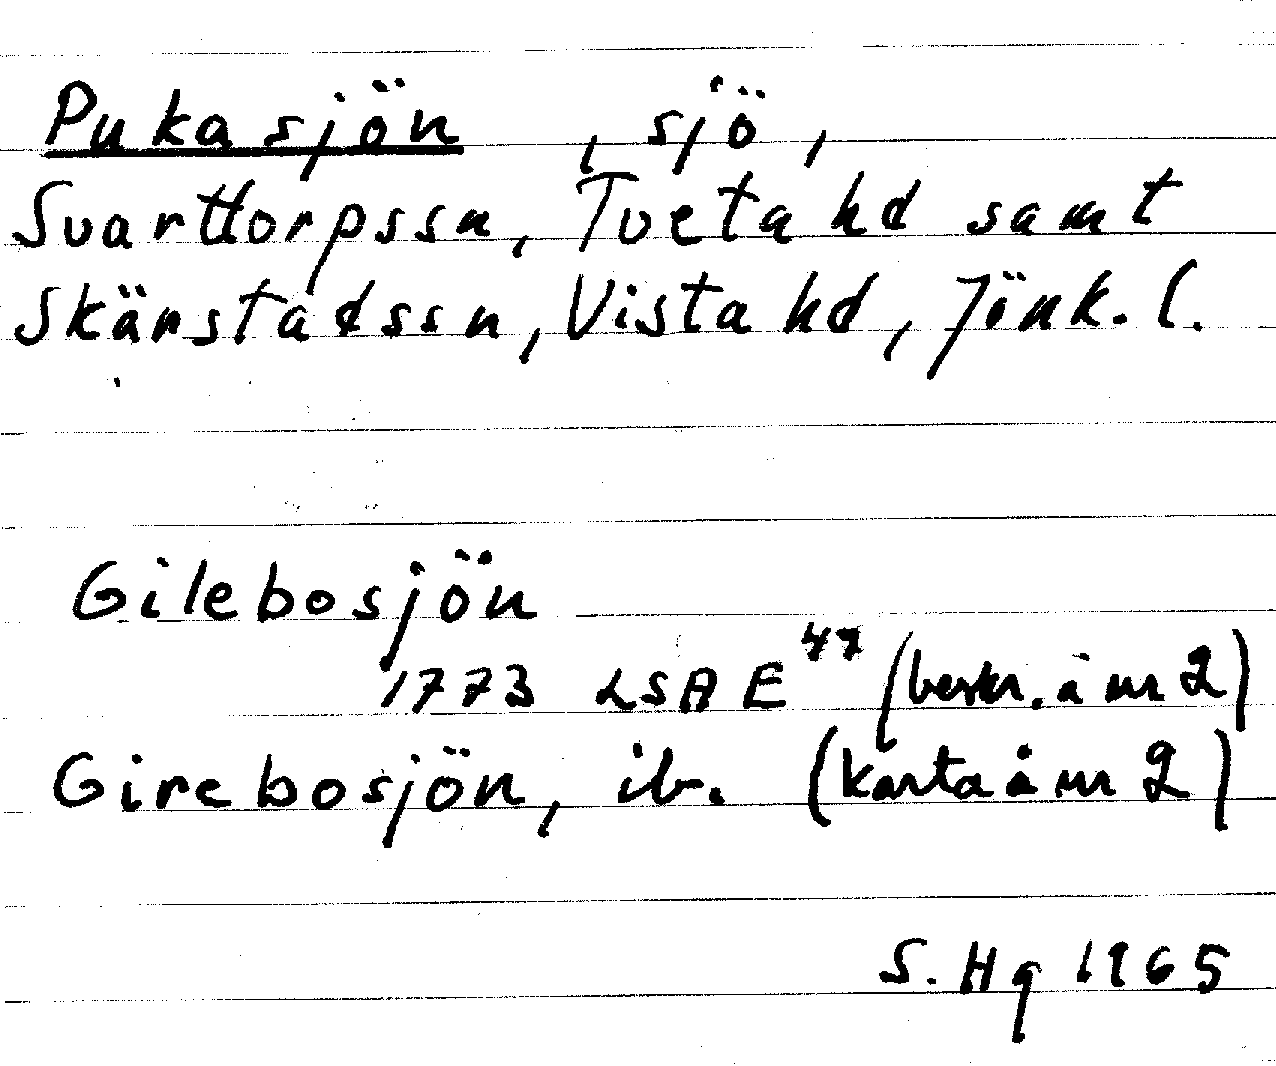 Pukasjön, sjö,
Svarttorpssn, Tveta hd samt
Skärstadssn, Vista hd, Jönk. l.
Gilebosjön
1773 LSA E 47 (beskr. å nr 2)
Girebosjön, ib. (karta å nr 2)
S. Hg 1965